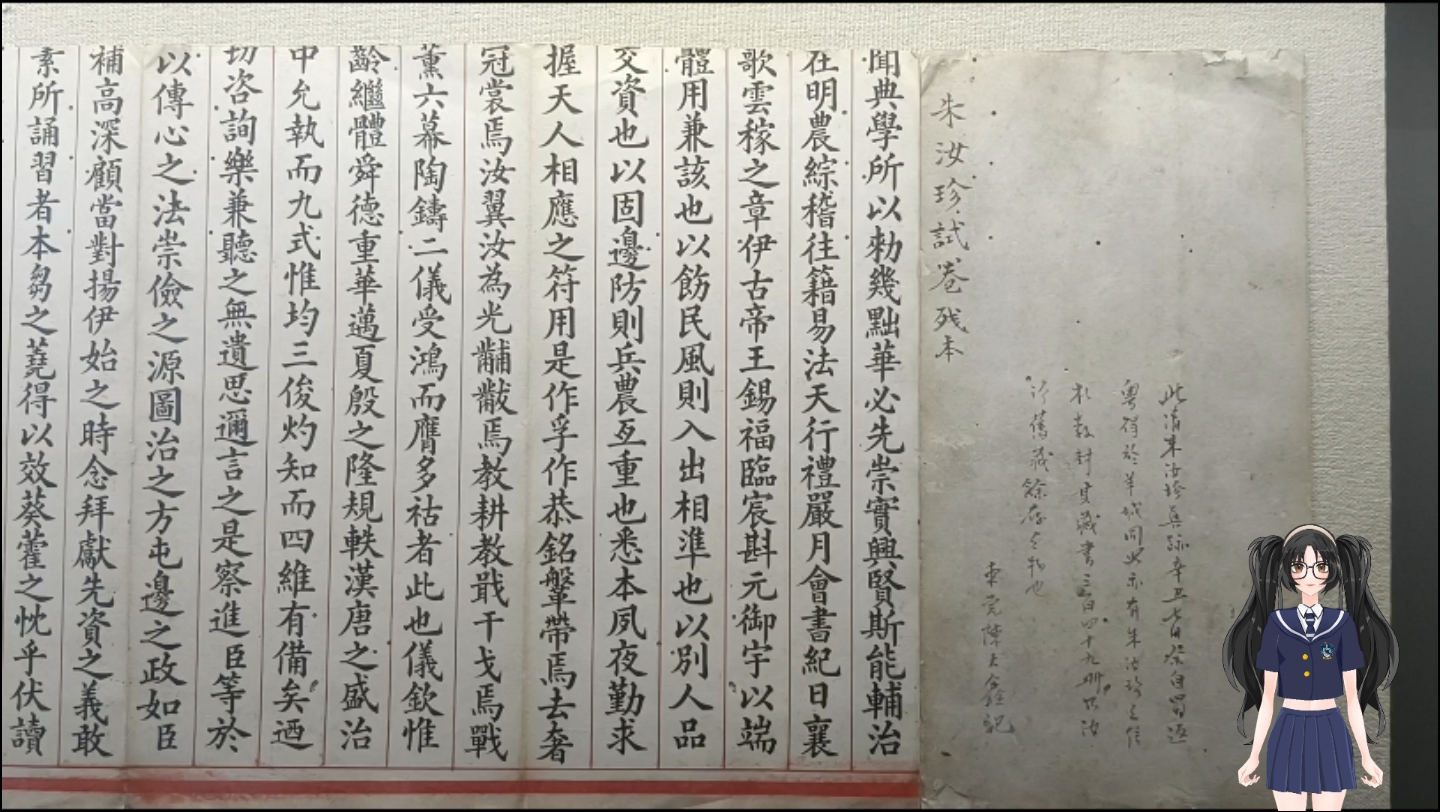 朱汝珍試卷残本
此清朱汝珍真跡辛丑七月癸自四川返
粵得於羊城同
村其藏書三百四十九冊
所舊藏餘存之物也
東莞陳大鑫記
聞典學所以勑幾點華必先崇實興賢斯能輔治
在明農綜稽往籍易法天行禮嚴月會書紀日襄
歌雲稼之章伊古帝王錫福臨宸斟元御宇以端
體用兼該也以飭民風則入出相準也以別人品
交資也以固邊防則兵農亙重也悉本夙夜勤求
握天人相應之符用是作孚作恭銘鞶帶焉去奢
冠裳焉汝翼汝為光黼黻焉教耕教戢干戈焉戰
薰六幕陶鑄二儀受鴻而膺多祜者此也儀欽惟
齡繼體舜德重華邁夏殷之隆規軼漢唐之盛治
中允執而九式惟均三俊灼知而四維有備矣迺
切咨詢樂兼聽之無遺思邇言之是察進臣等於
以傳心之法崇儉之源圖治之方屯邊之政如臣
補高深顧當對揚伊始之時念拜獻先資之義敢
素所誦習者本芻之蕘得以效葵藿之忱乎伏讀